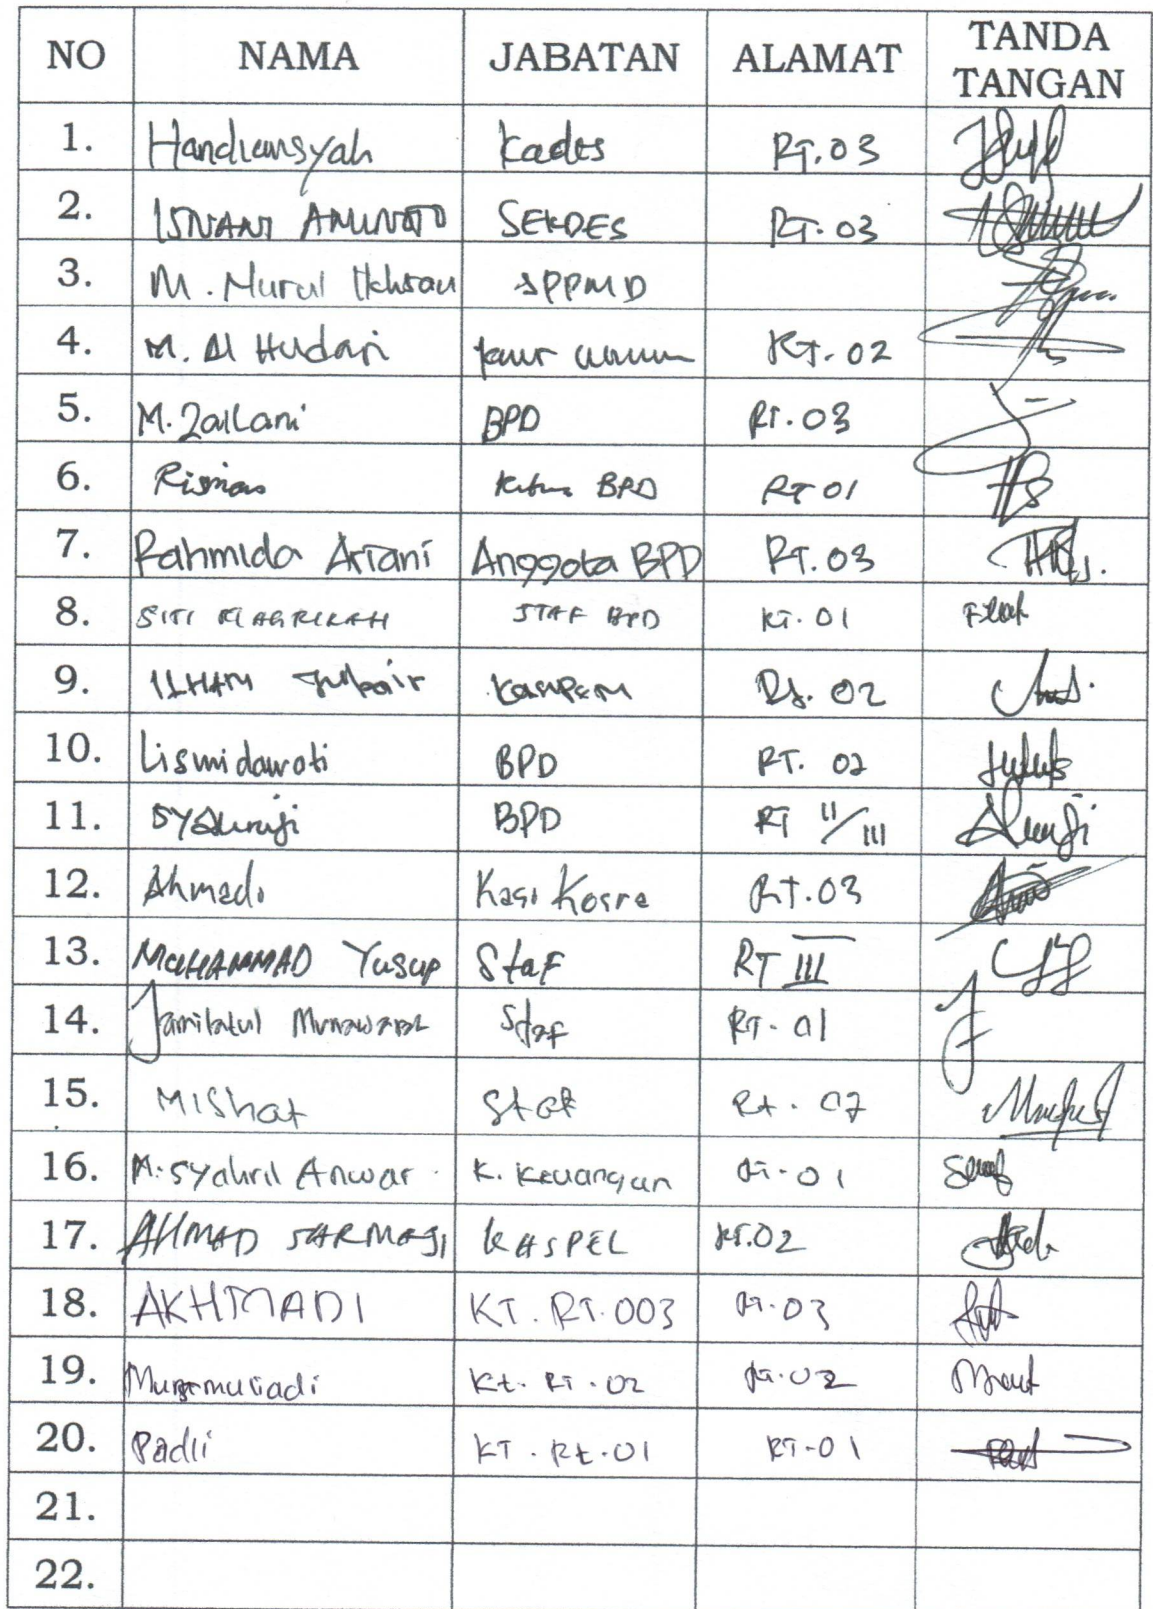 NO NAMA JABATAN ALAMAT TANDA TANGAN
1. Handiansyah Kades RT.03
2. ISNANI AMINOTO SEKDES RT.03
3. M. Nurul Ikhsan SPPMD
4. M. Al Hudari kaur umum RT.02
5. M. Zailani BPD RT.03
6. Risman Ketua BPD RT 01
7. Rahmida Ariani Anggota BPD RT.03
8. SITI STAF BPD RT.01
9. ILHAM Jubair Kasipem Rt. 02
10. Lismidawati BPD RT. 02
11. Syahruji BPD RT II/III
12. Ahmadi Kasi Kesra Rt.03
13. MUHAMMAD Yusup Staf RT III
14. Jamilatul Munawarah Staf RT. 01
15. Mishat Staf Rt. 02
16. M. Syahril Anwar K. Keuangan Rt.01
17. AHMAD SARMAJI KASPEL RT.02
18. AKHMADI KT. RT.003 Rt.03
19. Kt. RT.02 Rt.02
20. Padli KT. Rt.01 RT-01
21.
22.